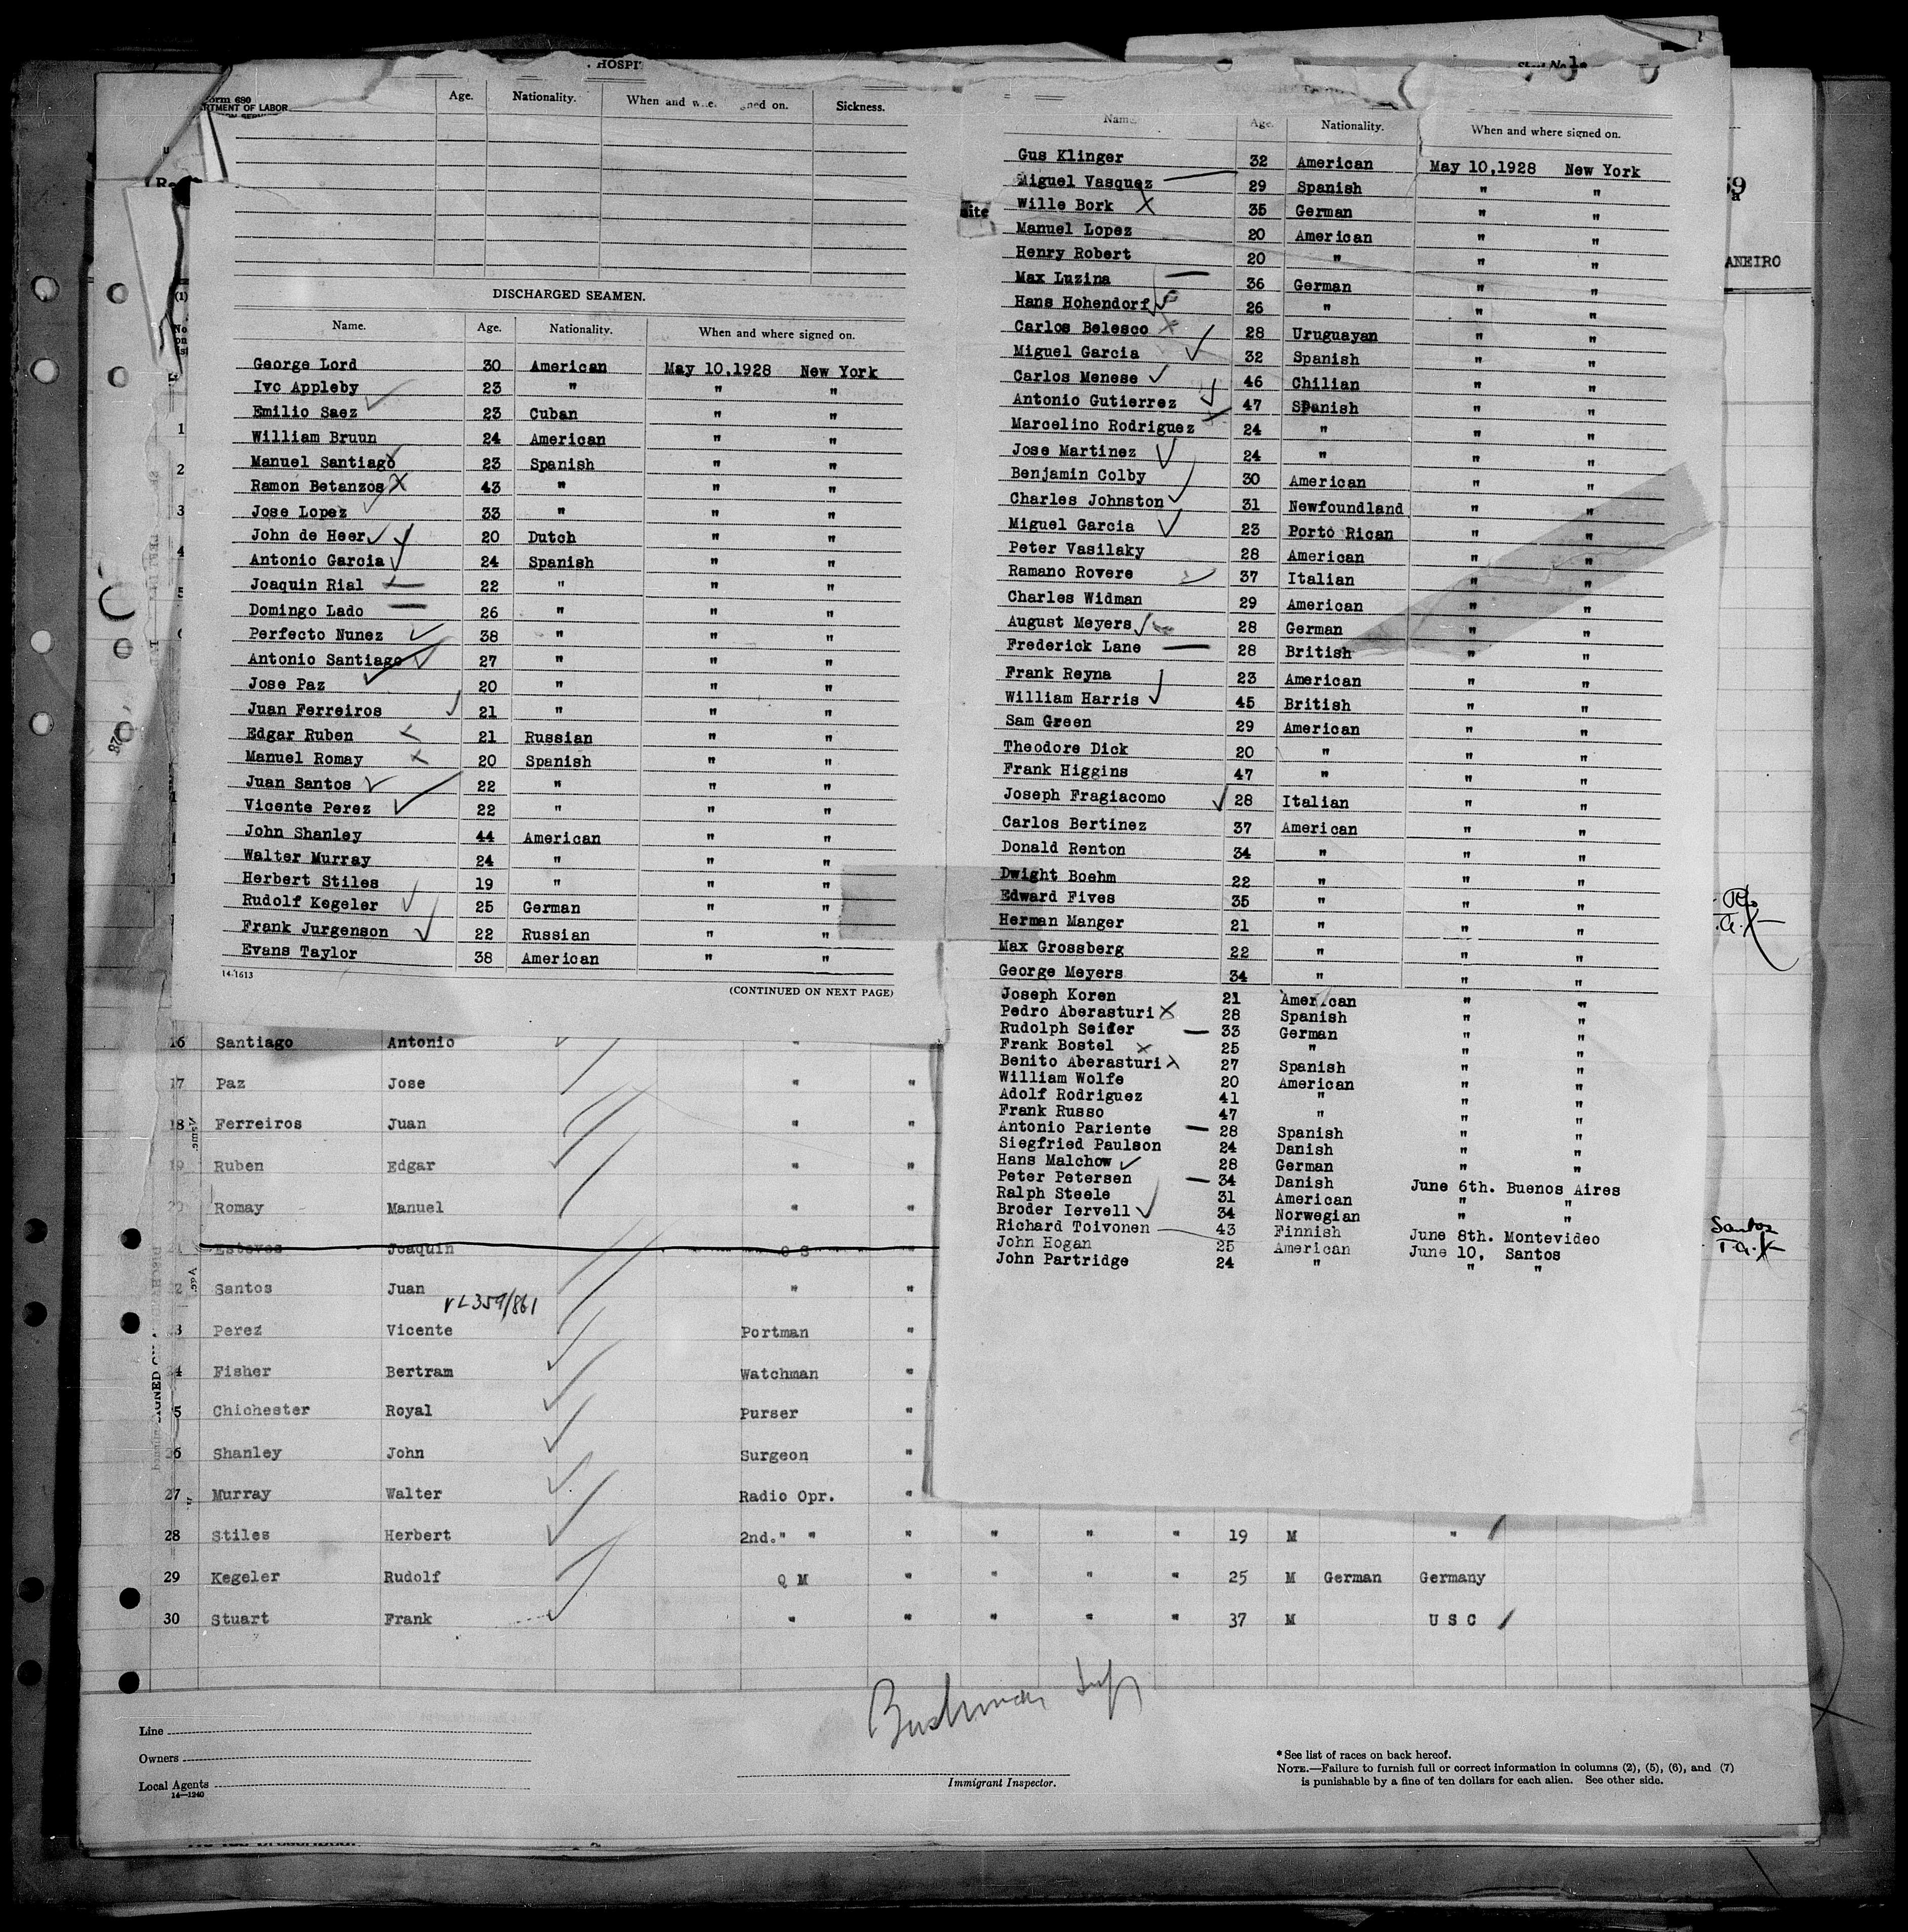 . HOSPIT
Form 680
RTMENT OF LABOR
Age. Nationality. When and signed on. Sickness.
DISCHARGED SEAMEN.
Name. Age. Nationality. When and where signed on.
George Lord 30 American May 10,1928 New York
Ivc Appleby 23 " " "
Emilio Saez 23 Cuban " "
William Bruun 24 American " "
Manuel Santiago 23 Spanish " "
Ramon Betanzos 43 " " "
Jose Lopez 33 " " "
John de Heer 20 Dutch " "
Antonio Garcia 24 Spanish " "
Joaquin Rial 22 " " "
Domingo Lado 26 " " "
Perfecto Nunez 38 " " "
Antonio Santiago 27 " " "
Jose Paz 20 " " "
Juan Ferreiros 21 " " "
Edgar Ruben 21 Russian " "
Manuel Romay 20 Spanish " "
Juan Santos 22 " " "
Vicente Perez 22 " " "
John Shanley 44 American " "
Walter Murray 24 " " "
Herbert Stiles 19 " " "
Rudolf Kegeler 25 German " "
Frank Jurgenson 22 Russian " "
Evans Taylor 38 American " "
14-1613
(CONTINUED ON NEXT PAGE)
Name. Age. Nationality. When and where signed on.
Gus Klinger 32 American May 10,1928 New York
Miguel Vasquez 29 Spanish " "
Wille Bork 35 German " "
Manuel Lopez 20 American " "
Henry Robert 20 " " "
Max Luzina 36 German " "
Hans Hohendorf 26 " " "
Carlos Belesco 28 Uruguayan " "
Miguel Garcia 32 Spanish " "
Carlos Menese 46 Chilian " "
Antonio Gutierrez 47 Spanish " "
Marcelino Rodriguez 24 " " "
Jose Martinez 24 " " "
Benjamin Colby 30 American " "
Charles Johnston 31 Newfoundland " "
Miguel Garcia 23 Porto Rican " "
Peter Vasilaky 28 American " "
Ramano Rovere 37 Italian " "
Charles Widman 29 American " "
August Meyers 28 German " "
Frederick Lane 28 British " "
Frank Reyna 23 American " "
William Harris 45 British " "
Sam Green 29 American " "
Theodore Dick 20 " " "
Frank Higgins 47 " " "
Joseph Fragiacomo 28 Italian " "
Carlos Bertinez 37 American " "
Donald Renton 34 " " "
Dwight Boehm 22 " " "
Edward Fives 35 " " "
Herman Manger 21 " " "
Max Grossberg 22 " " "
George Meyers 34 " " "
Joseph Koren 21 American " "
Pedro Aberasturi 28 Spanish " "
Rudolph Seider 33 German " "
Frank Bostel 25 " " "
Benito Aberasturi 27 Spanish " "
William Wolfe 20 American " "
Adolf Rodriguez 41 " " "
Frank Russo 47 " " "
Antonio Pariente 28 Spanish " "
Siegfried Paulson 24 Danish " "
Hans Malchow 28 German " "
Peter Petersen 34 Danish June 6th. Buenos Aires
Ralph Steele 31 American " "
Broder Iervell 34 Norwegian " "
Richard Toivonen 43 Finnish June 8th. Montevideo
John Hogan 25 American June 10, Santos
John Partridge 24 " " "
ANEIRO
Rio
Santos
16 Santiago Antonio "
17 Paz Jose " "
18 Ferreiros Juan " "
19 Ruben Edgar " "
20 Romay Manuel " "
21 Esteves Joaquin O S "
22 Santos Juan " "
359/861
23 Perez Vicente Portman "
24 Fisher Bertram Watchman "
25 Chichester Royal Purser "
26 Shanley John Surgeon "
27 Murray Walter Radio Opr. "
28 Stiles Herbert 2nd." " " " " " 19 M "
29 Kegeler Rudolf Q M " " " " 25 M German Germany
30 Stuart Frank " " " " " 37 M U S C
Line
Owners
Local Agents
14—1240
Immigrant Inspector.
* See list of races on back hereof.
NOTE.—Failure to furnish full or correct information in columns (2), (5), (6), and (7)
is punishable by a fine of ten dollars for each alien. See other side.